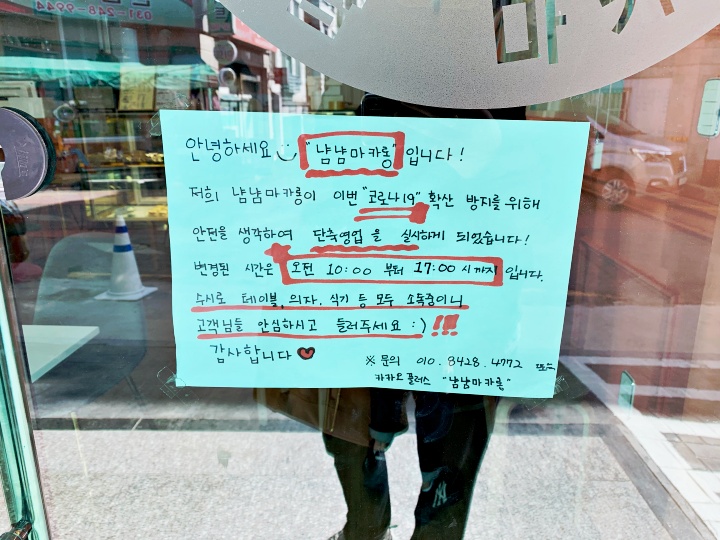 031-248-9944
마카
안녕하세요 "냠냠마카롱" 입니다!
저희 냠냠마카롱이 이번 "코로나19" 확산 방지를 위해
안전을 생각하여 단축영업을 실시하게 되었습니다!
변경된 시간은 오전 10:00 부터 17:00 시까지 입니다.
수시로 테이블, 의자, 식기 등 모두 소독중이니
고객님들 안심하시고 들러주세요 :) !!!
감사합니다
※ 문의 010.8428.4772 또는
카카오플러스 "냠냠마카롱"